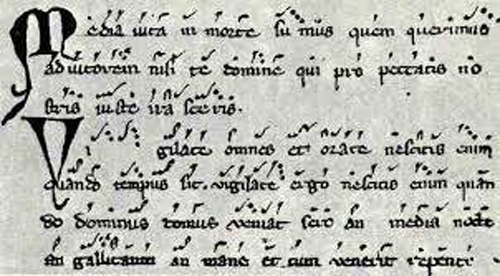 Media uita in morte su mus quem querimus
adiutorem nisi te domine qui pro peccatis no
stris iuste irasceris.
Vi gilate omnes et orate nescitis enim
quando tempus sit. vigilate ergo nescitis enim quan
do dominus domus veniat sero an media nocte
an gallicantu an mane et cum venerit repente